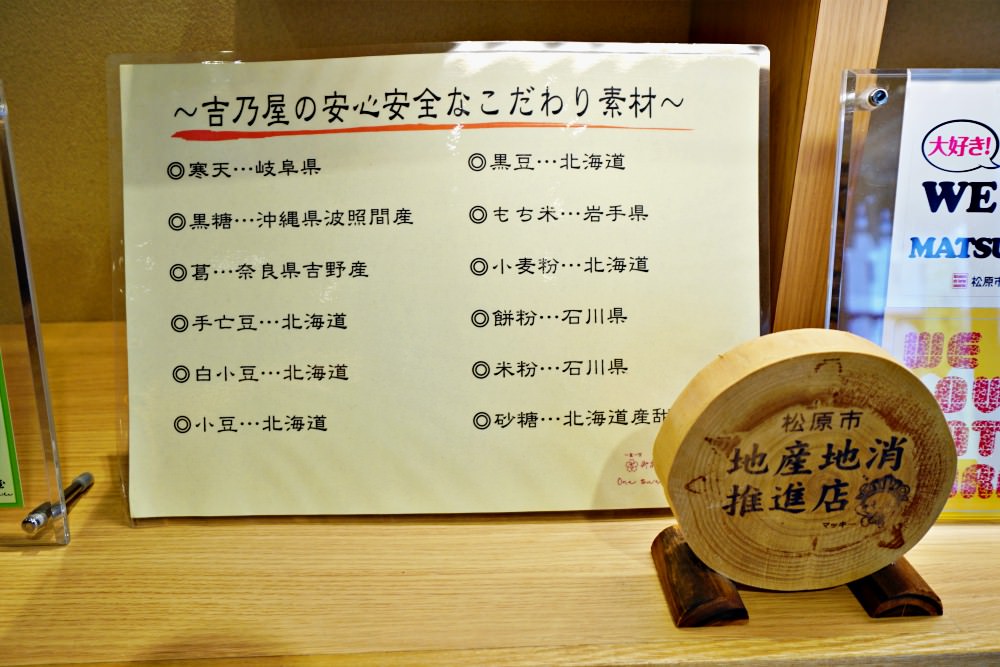 ～吉乃屋の安心安全なこだわり素材～
◎寒天…岐阜県
◎黒糖…沖縄県波照間産
◎葛…奈良県吉野産
◎手亡豆…北海道
◎白小豆…北海道
◎小豆…北海道
◎黒豆…北海道
◎もち米…岩手県
◎小麦粉…北海道
◎餅粉…石川県
◎米粉…石川県
◎砂糖…北海道産甜
One
松原市
地産地消
推進店
マッキー
大好き!
WE
MATSU
松原市
WE